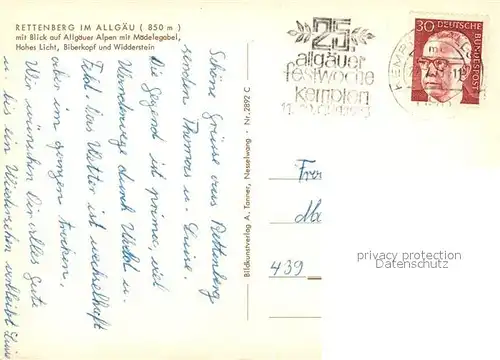 RETTENBERG IM ALLGÄU (850 m)
mit Blick auf Allgäuer Alpen mit Mädelegabel,
Hohes Licht, Biberkopf und Widderstein
Schöne Grüsse aus Rettenberg
senden Thomas u. Luise.
Die Gegend ist prima, viel
Wanderwege durch Wald u.
Feld. Das Wetter ist wechselhaft
aber im ganzen trocken.
Wir wünschen Dir alles Gute
u. bis ein Wiedersehn verbleibt Luise
Bildkunstverlag A. Tanner, Nesselwang · Nr. 2892 C
25.
allgäuer
festwoche
kempten
30 DEUTSCHE
BUNDESPOST
439
privacy protection
Datenschutz